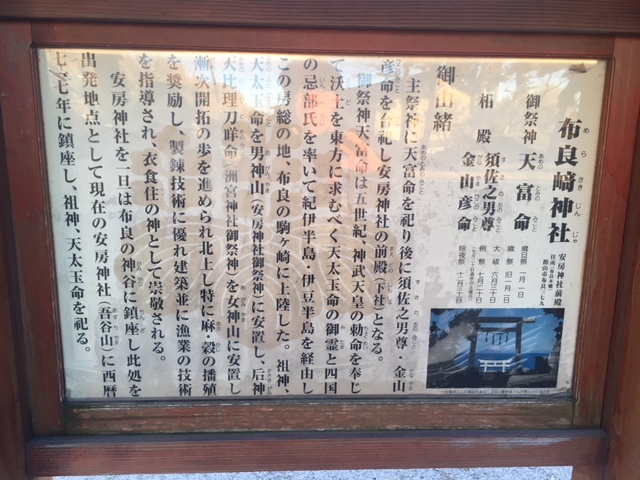 布良﨑神社
めらさきじんじゃ
安房神社前殿
館山市布良三七九
御祭神 天富命
あめのとみのみこと
相殿 須佐之男尊
すさのおのみこと
金山彦命
かなやまひこのみこと
歳旦祭 一月一日
歳祭 旧一月一日
大祓 六月三十日
例祭 七月二十日
除夜祭 十二月三十日
御由緒
主祭神に天富命を祀り後に須佐之男尊・金山
彦命を合祀し安房神社の前殿(下社)となる。
御祭神天富命は五世紀、神武天皇の勅命を奉じ
て沃土を東方に求むべく天太玉命の御霊と四国
の忌部氏を率いて紀伊半島・伊豆半島を経由し
この房総の地、布良の駒ヶ崎に上陸した。祖神、
天太玉命を男神山(安房神社御祭神)に安置し、后神
天比理刀咩命(洲宮神社御祭神)を女神山に安置し
漸次開拓の歩を進められ北上し特に麻・穀の播殖
を奨励し、製錬技術に優れ建築並に漁業の技術
を指導され、衣食住の神として崇敬される。
安房神社を一旦は布良の神谷に鎮座し此処を
出発地点として現在の安房神社(吾谷山)に西暦
七一七年に鎮座し、祖神、天太玉命を祀る。